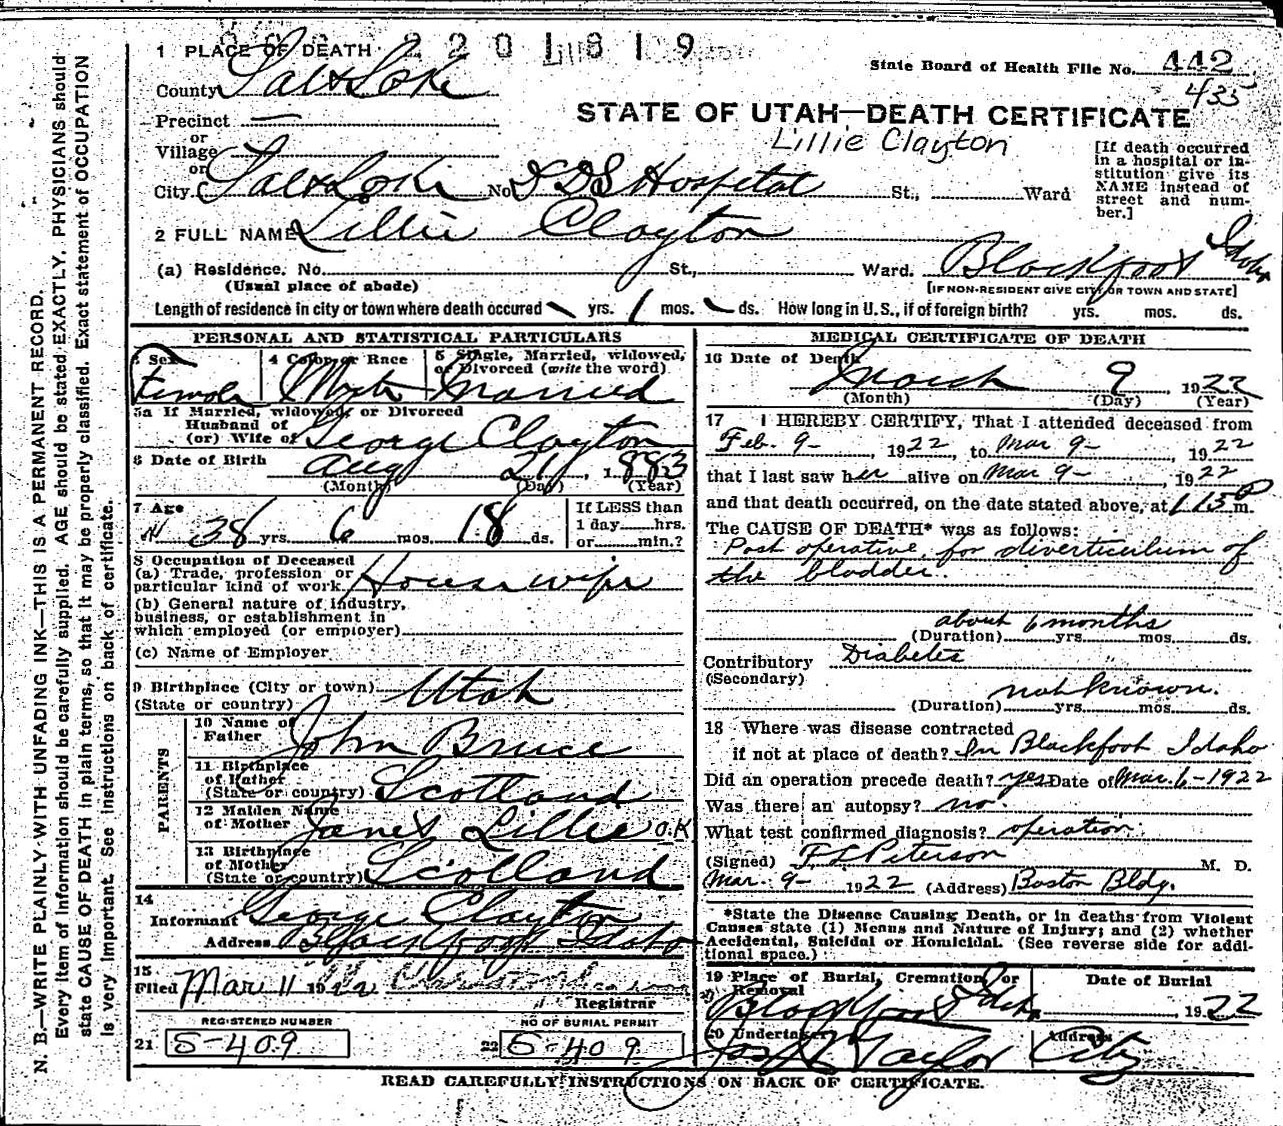 2201819
1 PLACE OF DEATH
State Board of Health File No. 442
435
County Salt Lake
STATE OF UTAH—DEATH CERTIFICATE
Precinct
Lillie Clayton
or
Village
or
City Salt Lake No. LDS Hospital St., Ward
[If death occurred in a hospital or institution give its NAME instead of street and number.]
2 FULL NAME Lillie Clayton
(a) Residence. No. St., Ward. Blackfoot Idaho
(Usual place of abode)
[IF NON-RESIDENT GIVE CITY OR TOWN AND STATE]
Length of residence in city or town where death occured yrs. 1 mos. ds. How long in U.S., if of foreign birth? yrs. mos. ds.
PERSONAL AND STATISTICAL PARTICULARS
3 Sex Female
4 Color or Race White
5 Single, Married, widowed, or Divorced (write the word) Married
5a If Married, widowed, or Divorced
Husband of
(or) Wife of George Clayton
6 Date of Birth Aug 21, 1883
(Month) (Day) (Year)
7 Age 38 yrs. 6 mos. 18 ds.
If LESS than
1 day hrs.
or min.?
8 Occupation of Deceased
(a) Trade, profession or
particular kind of work Housewife
(b) General nature of industry,
business, or establishment in
which employed (or employer)
(c) Name of Employer
9 Birthplace (City or town)
(State or country) Utah
PARENTS
10 Name of
Father John Bruce
11 Birthplace
of Father
(State or country) Scotland
12 Maiden Name
of Mother Janet Lillie O.K
13 Birthplace
of Mother
(State or country) Scotland
14
Informant George Clayton
Address Blackfoot Idaho
15
Filed Mar 11 1922
Registrar
REGISTERED NUMBER
21 S-409
NO OF BURIAL PERMIT
22 S-409
MEDICAL CERTIFICATE OF DEATH
16 Date of Death
March 9 1922
(Month) (Day) (Year)
17 I HEREBY CERTIFY, That I attended deceased from
Feb. 9-, 1922, to Mar 9-, 1922
that I last saw her alive on Mar 9-, 1922
and that death occurred, on the date stated above, at 1 15 P m.
The CAUSE OF DEATH* was as follows:
Post operative for diverticulum of
the bladder.
about 6 months
(Duration) yrs. mos. ds.
Contributory Diabetes
(Secondary)
not known.
(Duration) yrs. mos. ds.
18 Where was disease contracted
if not at place of death? In Blackfoot Idaho
Did an operation precede death? yes Date of Mar. 6-1922
Was there an autopsy? no.
What test confirmed diagnosis? operation.
(Signed) F L Peterson M. D.
Mar. 9- 1922 (Address) Boston Bldg.
*State the Disease Causing Death, or in deaths from Violent
Causes state (1) Means and Nature of Injury; and (2) whether
Accidental, Suicidal or Homicidal. (See reverse side for addi-
tional space.)
19 Place of Burial, Cremation, or
Removal
Blackfoot Idaho
Date of Burial
, 1922
20 Undertaker
Taylor
Address
City
READ CAREFULLY INSTRUCTIONS ON BACK OF CERTIFICATE.
N. B.—WRITE PLAINLY WITH UNFADING INK—THIS IS A PERMANENT RECORD.
Every item of information should be carefully supplied. AGE should be stated EXACTLY. PHYSICIANS should
state CAUSE OF DEATH in plain terms, so that it may be properly classified. Exact statement of OCCUPATION
is very important. See instructions on back of certificate.